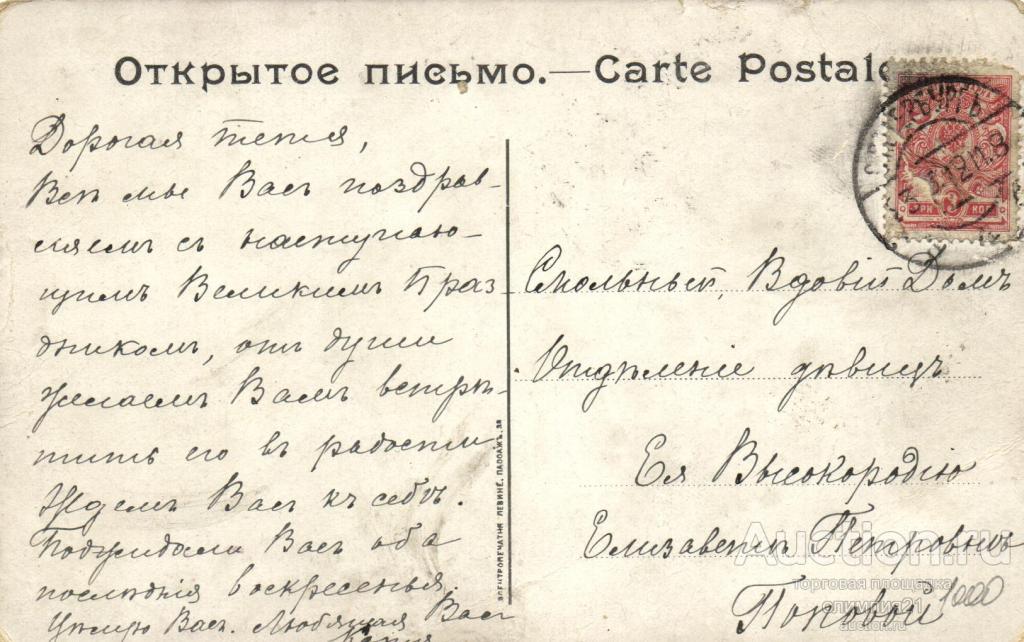 Открытое письмо.—Carte Postale
Дорогая тетя,
Всѣ мы Васъ поздрав-
ляемъ съ наступаю-
щимъ Великимъ Праз
дникомъ, отъ души
желаемъ Вамъ встрѣ-
тить его въ радости
Ждемъ Васъ къ себѣ.
Поджидали Васъ оба
послѣднія воскресенья.
Цѣлую Васъ. Любящая Васъ
Смольный, Вдовій Домъ
Отдѣленіе дѣвицъ
Ея Высокородію
Елизаветѣ Петровнѣ
Поповой
1000
ЭЛЕКТРОПЕЧАТНЯ ЛЕВИНЕ, ПАССАЖЪ, 38
ТРИ 3 КОП
Auction.ru
торговая площадка
олимпия21
auction.ru